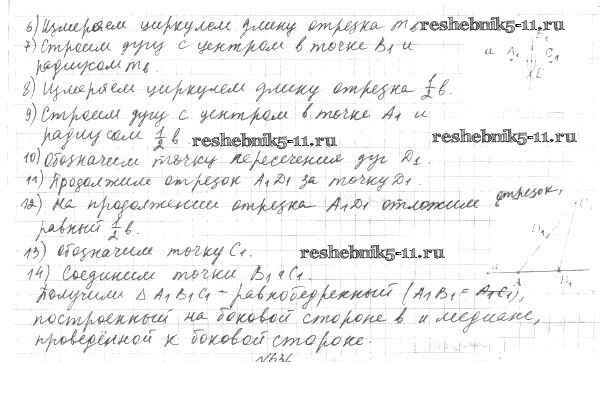 6) Измеряем циркулем длину отрезка mв
reshebnik5-11.ru
7) Строим дугу с центром в точке B1 и
радиусом mв.
и A1 C1
E
8) Измеряем циркулем длину отрезка 1/2 в.
9) Строим дугу с центром в точке A1 и
радиусом 1/2 в
reshebnik5-11.ru
reshebnik5-11.ru
10) Обозначим точку пересечения дуг D1.
11) Продолжим отрезок A1D1 за точку D1.
12) На продолжении отрезка A1D1 отложим отрезок,
равный 1/2 в.
13) Обозначим точку C1.
reshebnik5-11.ru
14) Соединим точки B1 и C1.
Получили Δ A1B1C1 - равнобедренный (A1B1 = A1C1),
построенный на боковой стороне в и медиане,
проведённой к боковой стороне.